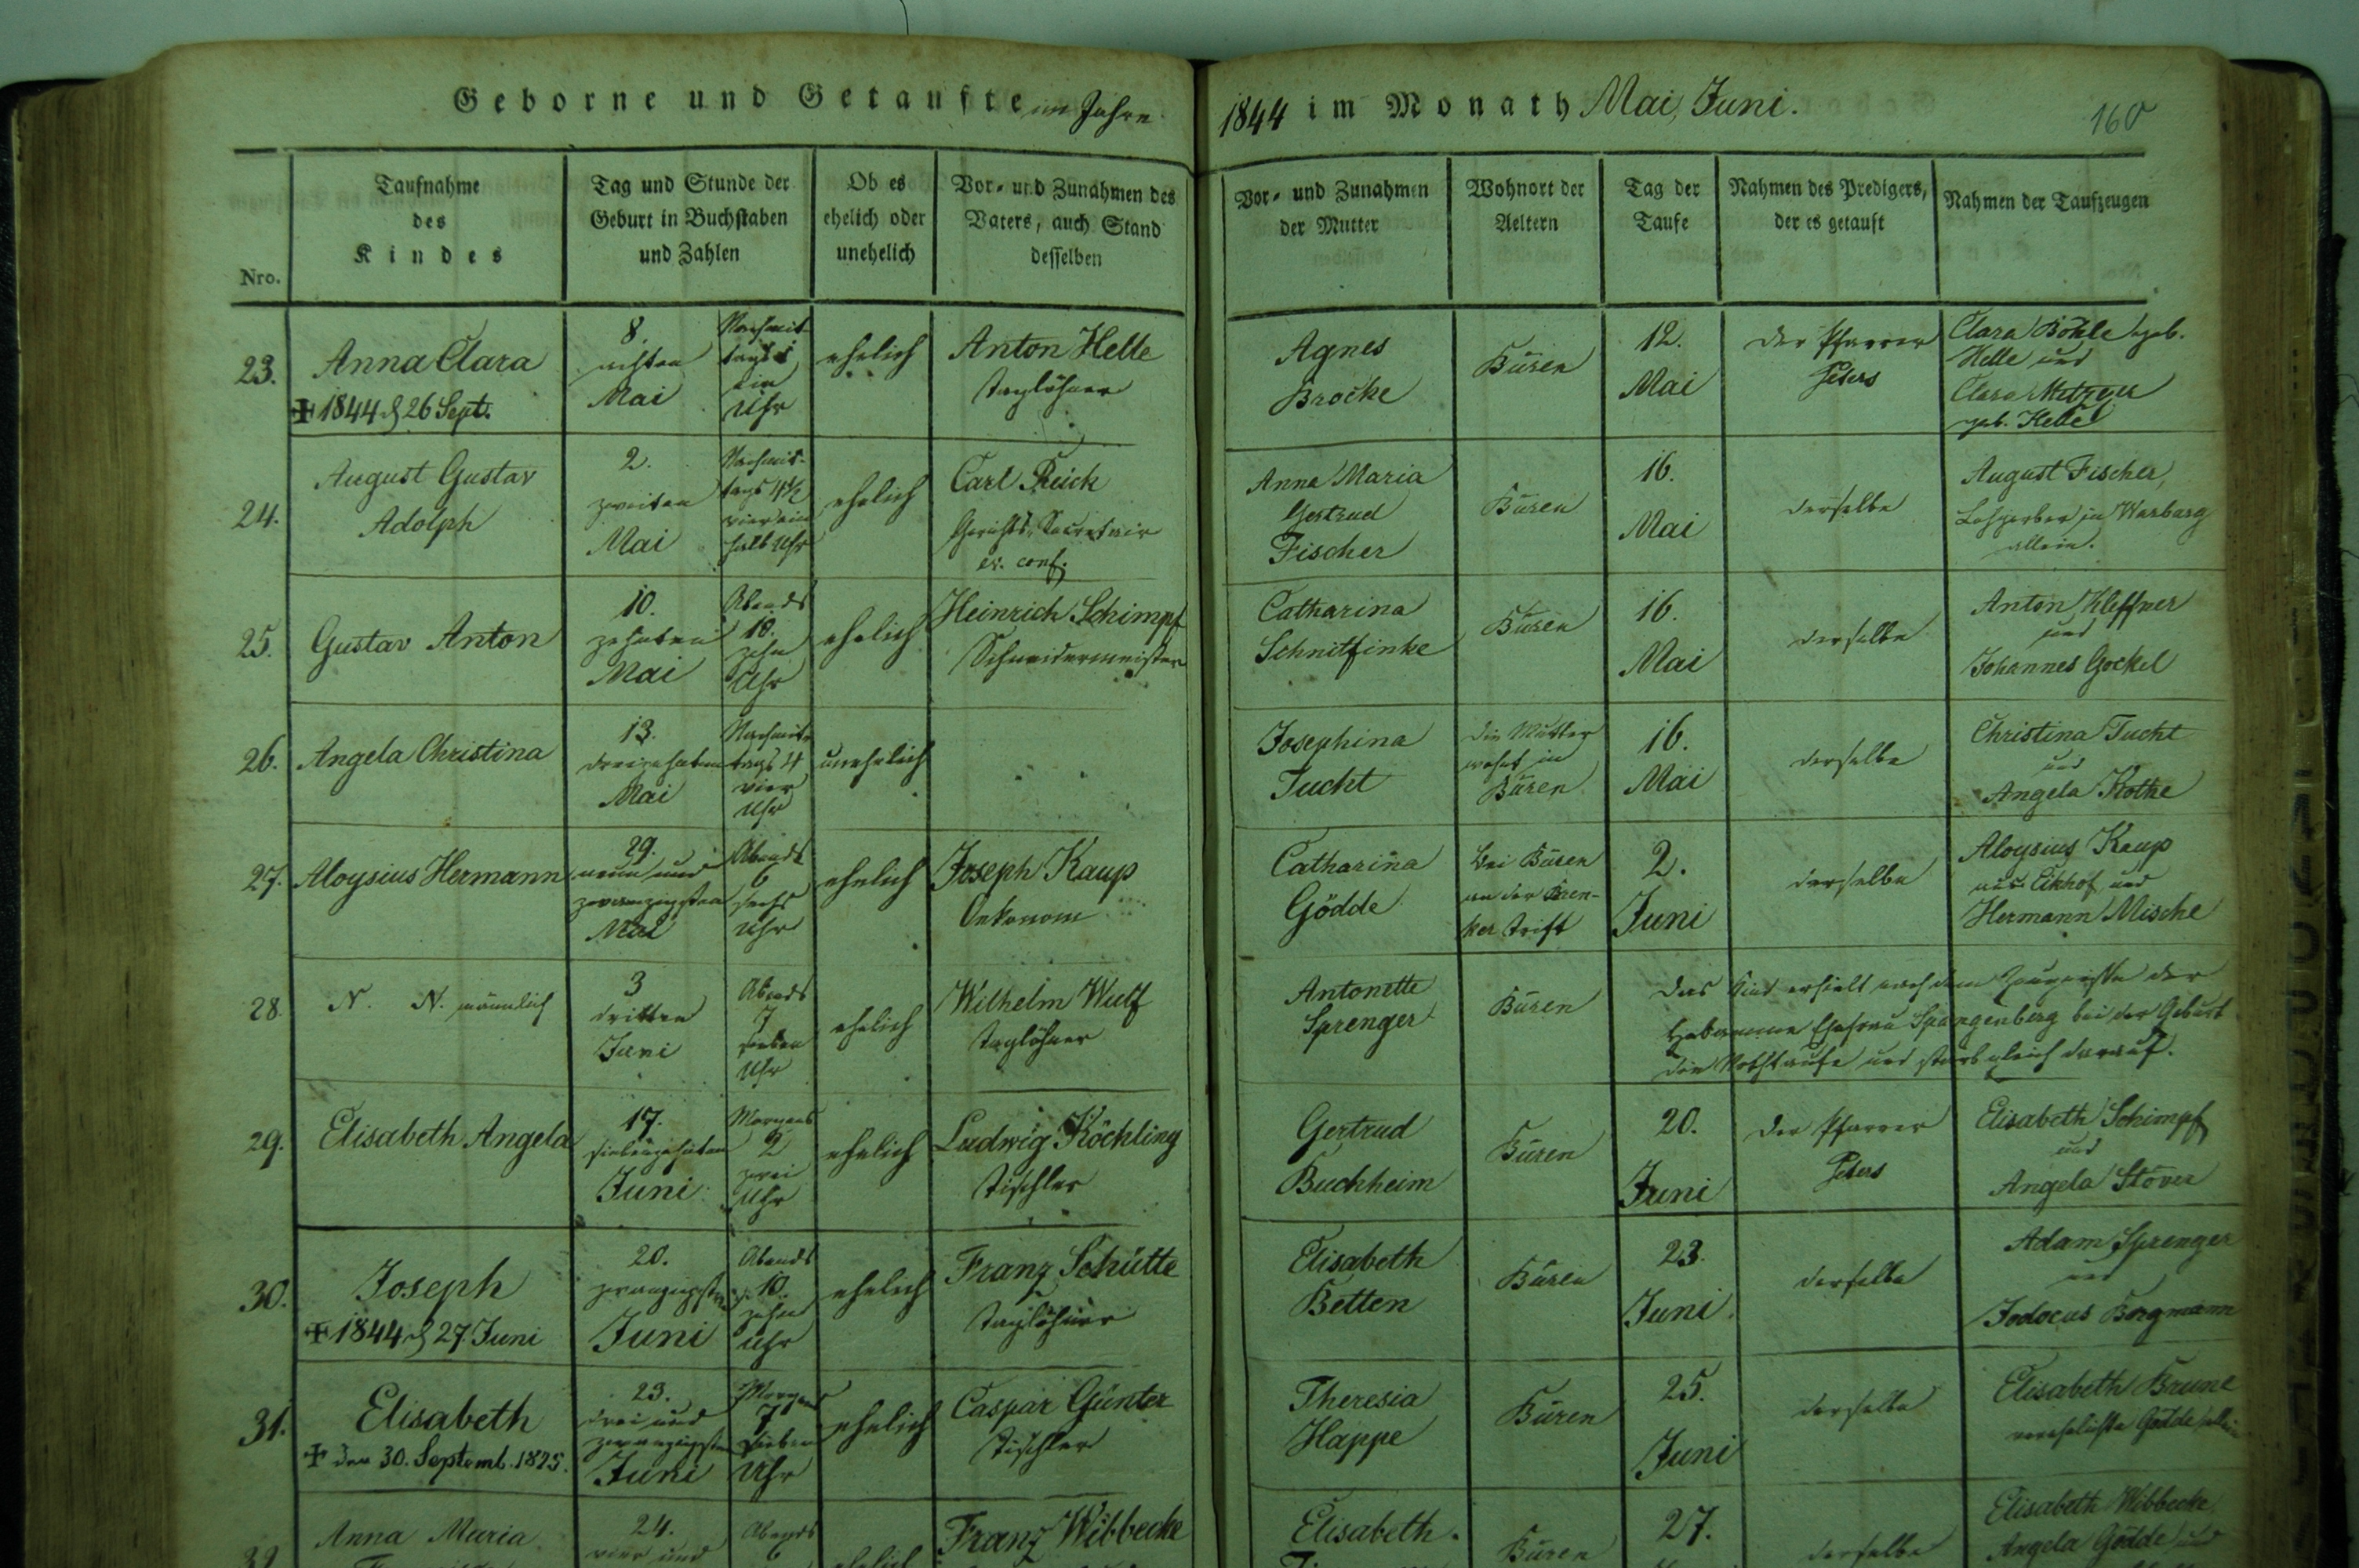 Geborne und Getaufte im Jahre 1844 im Monath Mai, Juni.
160
Nro.
Taufnahme
des
Kindes
Tag und Stunde der
Geburt in Buchstaben
und Zahlen
Ob es
ehelich oder
unehelich
Vor- und Zunahmen des
Vaters, auch Stand
desselben
Vor- und Zunahmen
der Mutter
Wohnort der
Aeltern
Tag der
Taufe
Nahmen des Predigers,
der es getauft
Nahmen der Taufzeugen
23.
Anna Clara
✠ 1844 d 26 Sept.
8.
achten
Mai
Nachmit-
tags 1
ein
Uhr
ehelich
Anton Helle
Taglöhner
Agnes
Brocke
Büren
12.
Mai
der Pfarrer
Peters
Clara Böhle geb.
Helle und
Clara Metzger
geb. Helle
24.
August Gustav
Adolph
2.
zweiten
Mai
Nachmit-
tags 4½
vier ein
halb Uhr
ehelich
Carl Reick
Gerichts-Secretair
ev. conf.
Anna Maria
Gertrud
Fischer
Büren
16.
Mai
derselbe
August Fischer,
Lohgerber in Warburg
allein.
25.
Gustav Anton
10.
zehnten
Mai
Abends
10.
zehn
Uhr
ehelich
Heinrich Schimpf
Schneidermeister
Catharina
Schnitfinke
Büren
16.
Mai
derselbe
Anton Kleffner
und
Johannes Gockel
26.
Angela Christina
13.
dreizehnten
Mai
Nachmit-
tags 4
vier
Uhr
unehelich
Josephina
Tucht
die Mutter
wohnt in
Büren
16.
Mai
derselbe
Christina Tucht
und
Angela Kothe
27.
Aloysius Hermann
29.
neun und
zwanzigsten
Mai
Abends
6
sechs
Uhr
ehelich
Joseph Kaup
Oekonom
Catharina
Gödde
bei Büren
an der Bren-
ker Trift
2.
Juni
derselbe
Aloysius Kaup
aus Eikhof und
Hermann Mische
28.
N. N. männlich
3
dritten
Juni
Abends
7
sieben
Uhr
ehelich
Wilhelm Wulf
Taglöhner
Antonette
Sprenger
Büren
Das Kind erhielt nach dem Zeugnisse der
Hebamme Ehefrau Spangenberg bei der Geburt
die Nothtaufe und starb gleich darauf.
29.
Elisabeth Angela
17.
siebenzehnten
Juni
Morgens
2
zwei
Uhr
ehelich
Ludwig Köchling
Tischler
Gertrud
Buchheim
Büren
20.
Juni
der Pfarrer
Peters
Elisabeth Schimpf
und
Angela Stöver
30.
Joseph
✠ 1844 d 27. Juni
20.
zwanzigsten
Juni
Abends
10.
zehn
Uhr
ehelich
Franz Schütte
Taglöhner
Elisabeth
Betten
Büren
23.
Juni
derselbe
Adam Sprenger
und
Jodocus Borgmann
31.
Elisabeth
✝ den 30. Septemb. 1875.
23.
drei und
zwanzigsten
Juni
Morgens
7
sieben
Uhr
ehelich
Caspar Günter
Tischler
Theresia
Happe
Büren
25.
Juni
derselbe
Elisabeth Brune
verehelichte Gödde allein
32
Anna Maria
24.
vier und
Abends
6
ehelich
Franz Wibbecke
Elisabeth
Büren
27.
derselbe
Elisabeth Wibbecke
Angela Gödde und